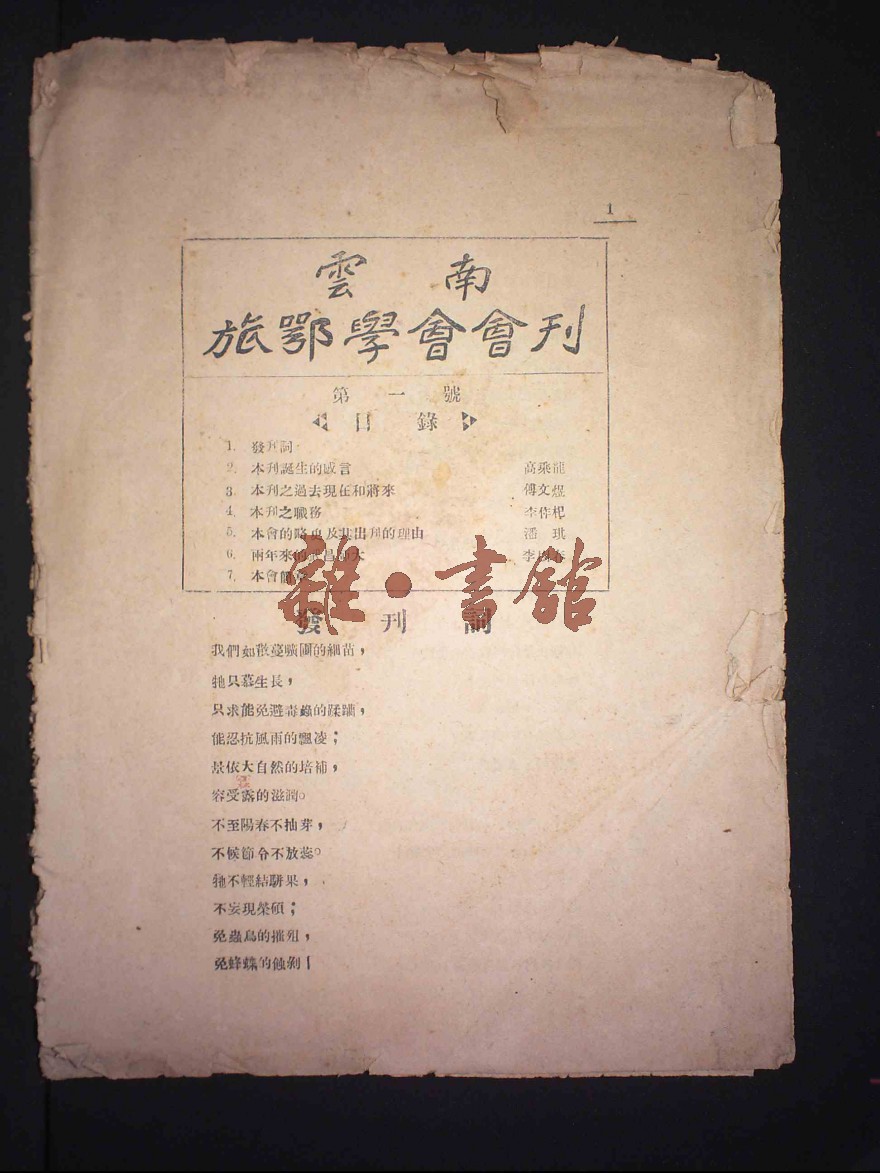 1
雲南
旅鄂學會會刊
第一號
目錄
1. 發刊詞
2. 本刊誕生的感言 高乘龍
3. 本刊之過去現在和將來 傅文煜
4. 本刊之職務 李作楫
5. 本會的略史及其出刊的理由 潘琪
6. 兩年來的 昌 大 李 春
7. 本會簡章
雜·書館
發刊詞
我們如散蔓曠圃的細苗，
牠只慕生長，
只求能免避毒蟲的蹂躪，
能忍抗風雨的飄凌；
景依大自然的培補，
容受露的滋潤。
不至陽春不抽芽，
不候節令不放蕊。
牠不輕結駢果，
不妄現榮碩；
免蟲鳥的摧殂，
免蜂蝶的蝕剝！